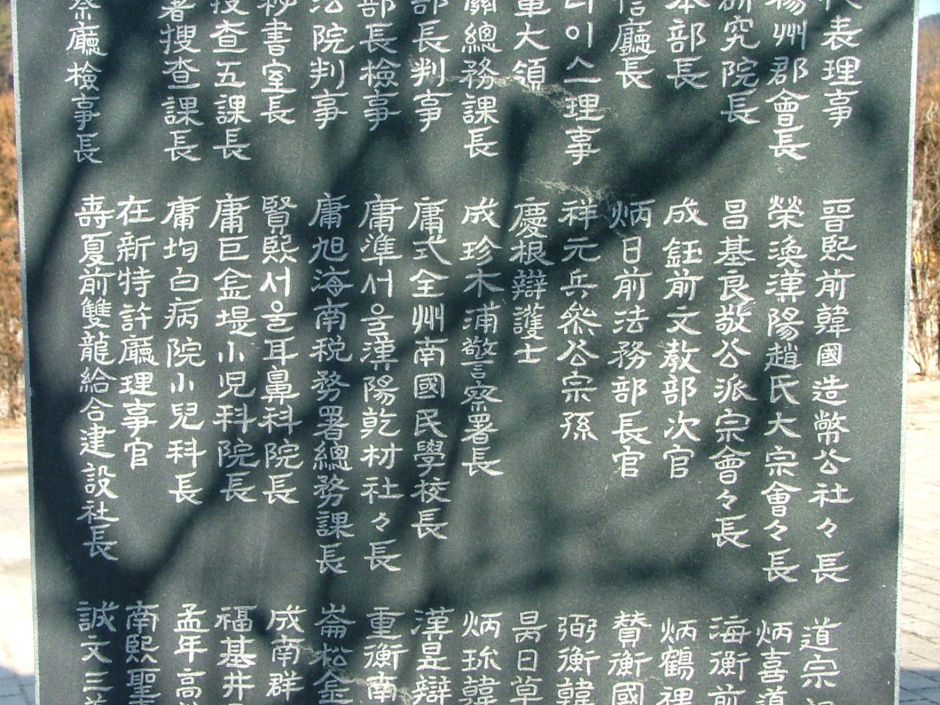 代表理事
楊州郡會長
研究院長
本部長
信廳長
이스理事
軍大領
關總務課長
部長判事
部長檢事
法院判事
秘書室長
搜查五課長
署搜查課長
察廳檢事長
晋熙前韓國造幣公社々長
榮渙漢陽趙氏大宗會々長
昌基良敬公派宗會々長
成鈺前文敎部次官
炳日前法務部長官
祥元兵參公宗孫
慶根辯護士
成珍木浦警察署長
庸式全州南國民學校長
庸準서울漢陽乾材社々長
庸旭海南稅務署總務課長
賢熙서울耳鼻科院長
庸巨金堤小児科院長
庸均白病院小兒科長
在新特許廳理事官
壽夏前雙龍給合建設社長
道宗
炳喜道
海衡前
炳鶴裡
贊衡國
弼衡韓
昺日草
炳珎韓
漢昱辯
重衡南
崙松金
成南群
福基井
孟年高
南熙聖
誠文三